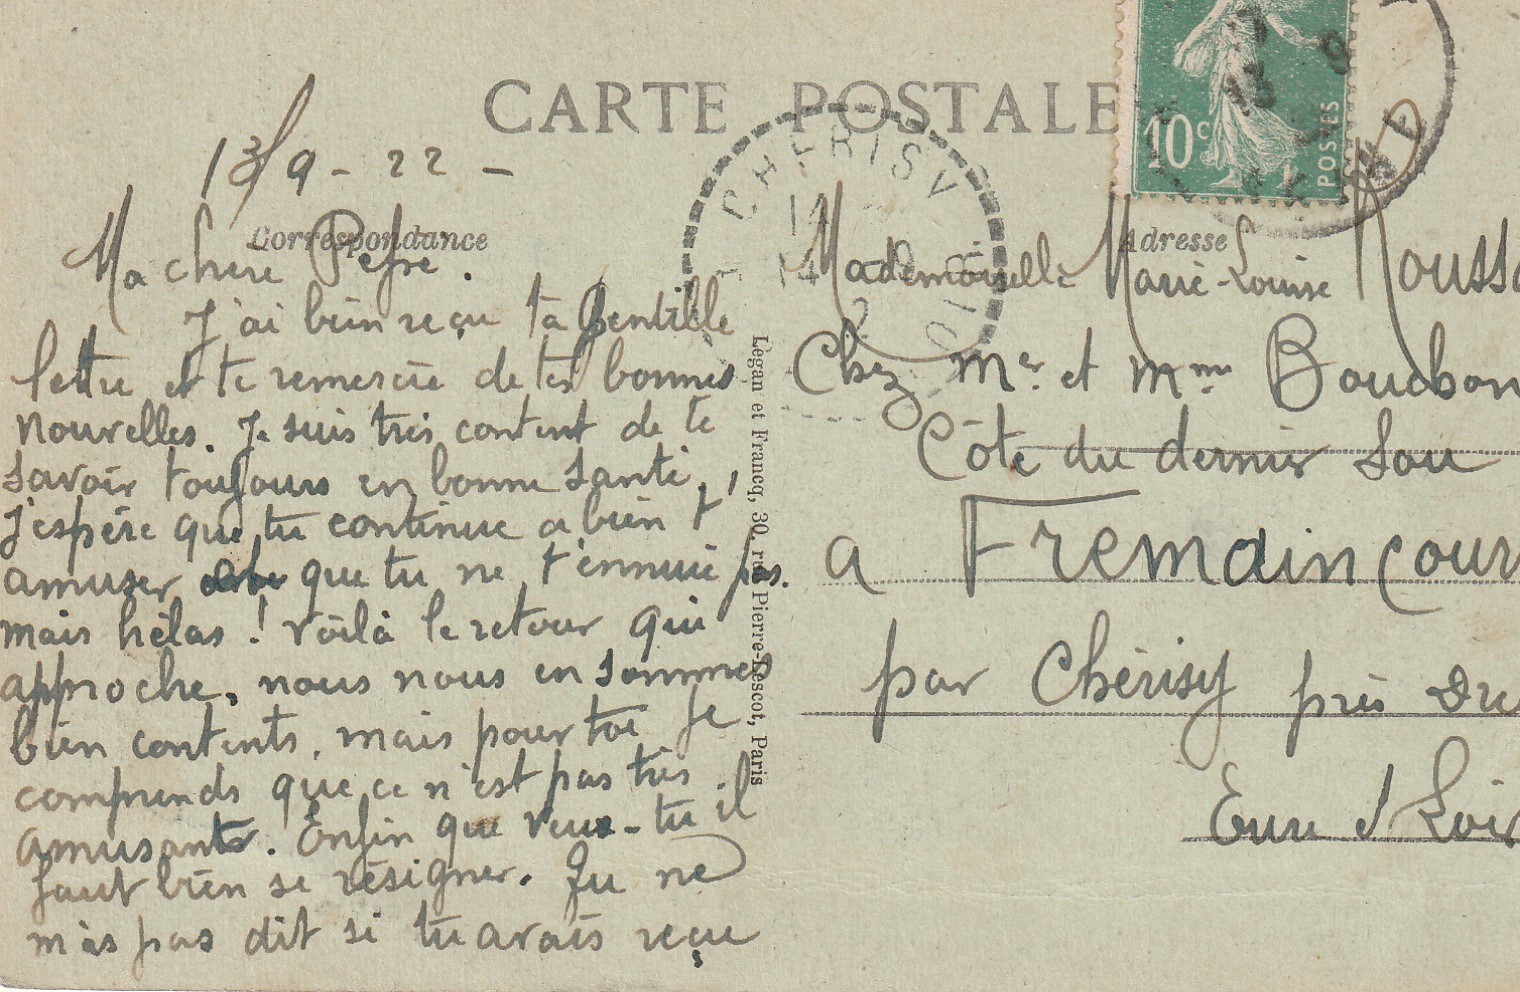 CARTE POSTALE
13/9-22-
Correspondance
Ma chère
J'ai bien reçu ta Gentille
lettre et te remercie de tes bonnes
nouvelles. Je suis très content de te
savoir toujours en bonne santé,
J'espère que tu continue a bien t'
amuser que tu ne t'ennuie pas.
mais hélas ! Voilà le retour qui
approche, nous nous en sommes
bien contents, mais pour toi Je
comprends que ce n'est pas très
amusant. Enfin que veux-tu il
faut bien se résigner. Tu ne
m'as pas dit si tu avais reçu
Legan et Francq, 30, rue Pierre-Lescot, Paris
10c
POSTES
CHERISY
14
Adresse
Mademoiselle Marie-Louise Rouss
Chez Mr. et Mme Bouchon
Côte du dernier Sou
a Fremaincour
par Chérisy près Dre
Eure & Loir